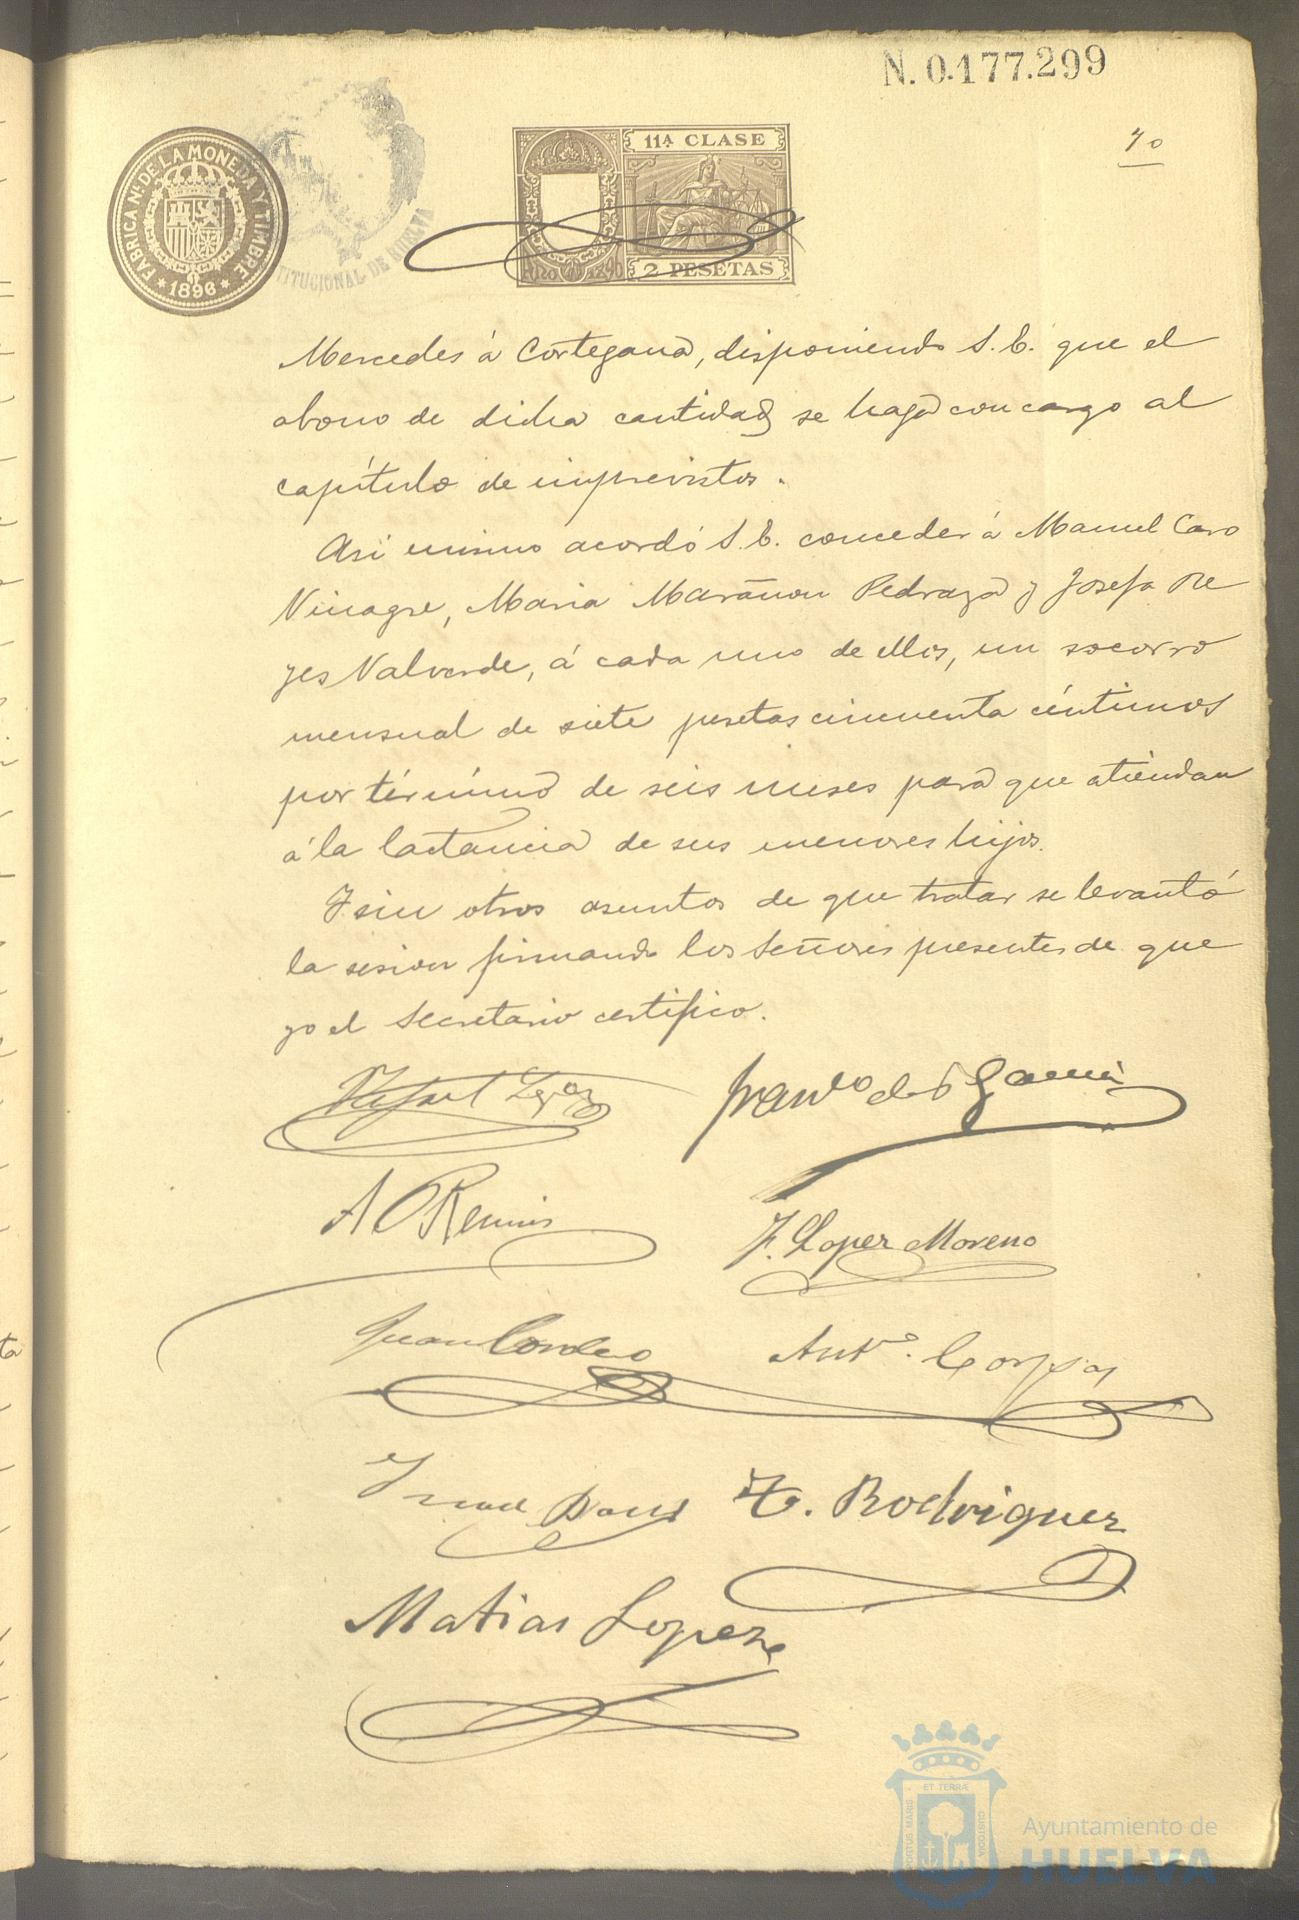 N. 0.177.299
70
FABRICA NL. DE LA MONEDA Y TIMBRE
1896
TITUCIONAL DE HUELVA
11ª CLASE
Año 1896
2 PESETAS
Mercedes á Cortegana, disponiendo S. E. que el
abono de dicha cantidad se haga con cargo al
capítulo de imprevistos.
Asi mismo acordó S. E. conceder á Manuel Caro
Vinagre, Maria Marañon Pedraza y Josefa Re
yes Valverde, á cada uno de ellos, un socorro
mensual de siete pesetas cincuenta céntimos
por término de seis meses para que atiendan
á la lactancia de sus menores hijos.
Y sin otros asuntos de que tratar se levantó
la sesion firmando los Señores presentes de que
yo el Secretario certifico.
Rafael Franco de P. Garcia
A
F. Lopez Moreno
Juan Cordero
Anto.
F. Rodriguez
Matias Lopez
PORTUS MARIS ET TERRÆ CUSTODIA
Ayuntamiento de
HUELVA